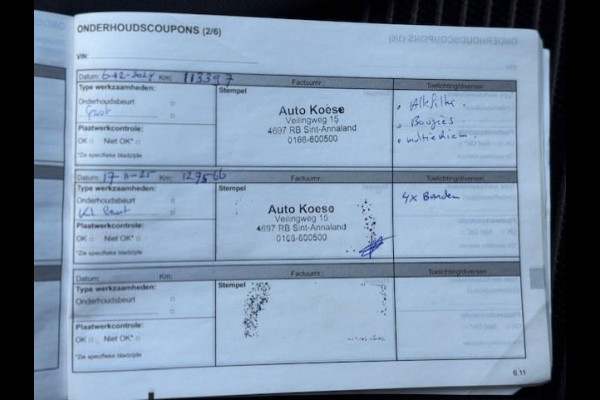 ONDERHOUDSCOUPONS (2/6)
VIN
Datum: 6-12-2024 Km: 113397 Factuurnr.: Toelichting/diversen
Type werkzaamheden: Stempel
Onderhoudsbeurt
Groot
Plaatwerkcontrole:
OK Niet OK*
*Zie specifieke bladzijde
Auto Koese
Veilingweg 15
4697 RB Sint-Annaland
0166-600500
Bougies
Datum: 17-11-25 Km: 127566 Factuurnr.: Toelichting/diversen
Type werkzaamheden: Stempel
Onderhoudsbeurt
Kl Beurt
Plaatwerkcontrole:
OK Niet OK*
*Zie specifieke bladzijde
Auto Koese
Veilingweg 15
4697 RB Sint-Annaland
0166-600500
4x Banden
Datum: Km: Factuurnr.: Toelichting/diversen
Type werkzaamheden: Stempel
Onderhoudsbeurt
Plaatwerkcontrole:
OK Niet OK*
*Zie specifieke bladzijde
6.11